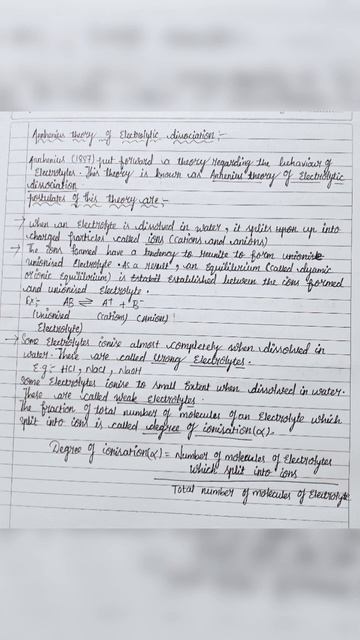 Arrhenius theory of Electrolytic dissociation :-
Arrhenius (1887) put forward a theory regarding the behaviour of
Electrolytes. This theory is known as Arrhenius theory of Electrolytic
dissociation
postulates of this theory are :-
→ when an Electrolyte is dissolved in water, it splits upon up into
charged particles called ions (cations and anions)
→ The ions formed have a tendency to reunite to form unionise
unionised Electrolyte. As a result, an equilibrium (called dyamic
or ionic equilibrium) is established between the ions formed
and unionised electrolyte.
Ex:- AB ⇌ A⁺ + B⁻
(Unionised (cation) (Anions)
Electrolyte)
→ Some Electrolytes ionise almost completely when dissolved in
water. These are called strong Electrolytes.
E.g:- HCl, NaCl, NaOH
Some Electrolytes ionise to small Extent when dissolved in water.
These are called weak Electrolytes.
The fraction of total number of molecules of an Electrolyte which
split into ions is called degree of ionisation (α).
Degree of ionisation (α) = Number of molecules of Electrolytes
which split into ions
Total number of molecules of Electrolyte